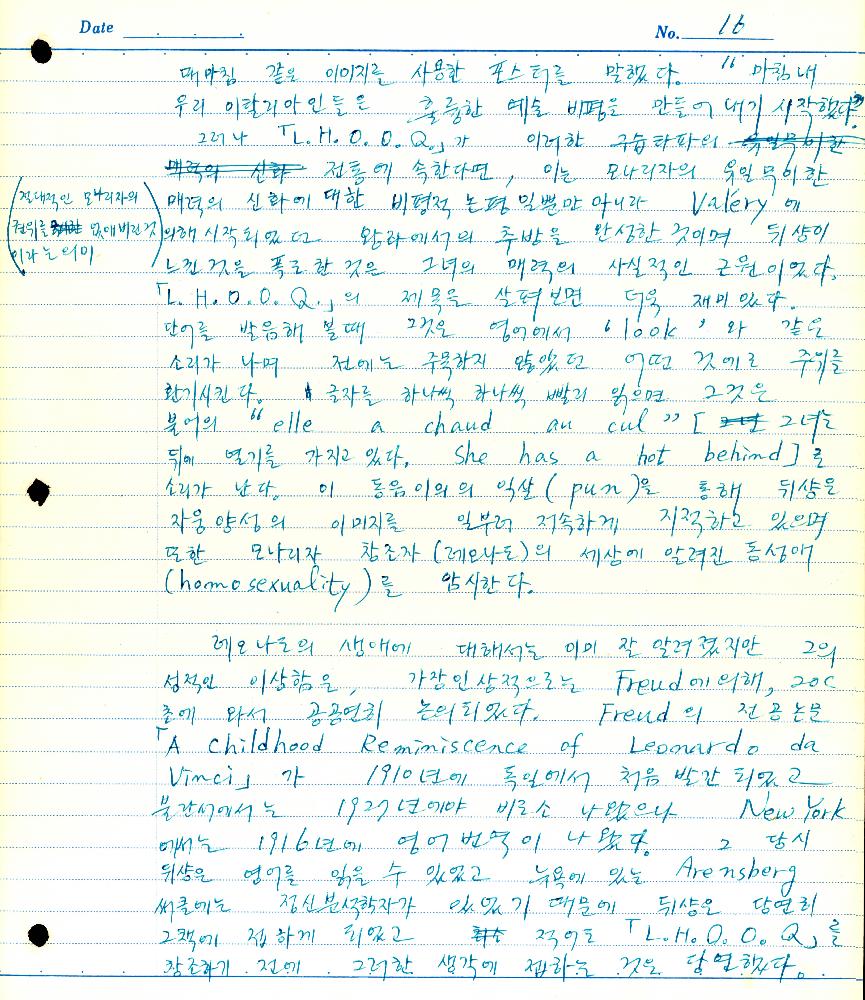 Date
No. 16
때마침 같은 이미지를 사용한 포스터를 말했다. " 마침내
우리 이탈리아인들은 훌륭한 예술 비평을 만들어 내기 시작했다"
그러나 「L.H.O.O.Q.」가 이러한 구습타파의 유일무이한
매력의 신화 전통에 속한다면, 이는 모나리자의 유일무이한
매력의 신화에 대한 비평적 논평일뿐만 아니라 Valéry에
의해 시작되었던 왕좌에서의 추방을 완성한 것이며 뒤샹이
느낀것을 폭로한 것은 그녀의 매력의 사실적인 근원이었다.
(절대적인 모나리자의
권위를 없애버린것
이라는 의미)
「L.H.O.O.Q.」의 제목을 살펴보면 더욱 재미있다.
단어를 발음해 볼때 그것은 영어에서 'look'와 같은
소리가 나며 전에는 주목하지 않았던 어떤 것에로 주위를
환기시킨다. 글자를 하나씩 하나씩 빨리 읽으면 그것은
불어의 "elle a chaud au cul" [ 그녀는
뒤에 열기를 가지고 있다, She has a hot behind]로
소리가 난다. 이 동음이의의 익살(pun)을 통해 뒤샹은
자웅양성의 이미지를 일부러 저속하게 지적하고 있으며
또한 모나리자 창조자(레오나도)의 세상에 알려진 동성애
(homosexuality)를 암시한다.
레오나도의 생애에 대해서는 이미 잘 알려졌지만 그의
성적인 이상함은, 가장인상적으로는 Freud에 의해, 20C
초에 와서 공공연히 논의되었다. Freud의 전공논문
「A childhood Reminiscence of Leonardo da
Vinci」가 1910년에 독일에서 처음 발간되었고
불란서에서는 1927년에야 비로소 나왔으나 New York
에서는 1916년에 영어번역이 나왔다. 그 당시
뒤샹은 영어를 읽을 수 있었고 뉴욕에 있는 Arensberg
써클에는 정신분석학자가 있었기 때문에 뒤샹은 당연히
그책에 접하게 되었고 적어도 「L.H.O.O.Q」를
창조하기 전에 그러한 생각에 접하는 것은 당연했다.